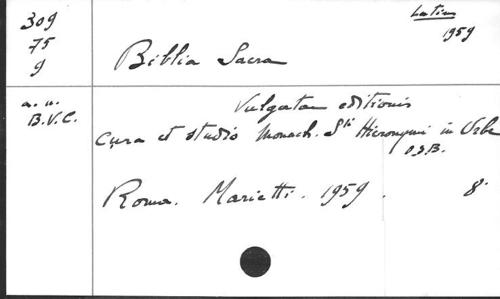 309
75
9
Latin
1959
Biblia Sacra
a. u.
B.V.C.
Vulgatae editionis
cura et studio Monach. Sti Hieronymi in Urbe
O.S.B.
Roma. Marietti. 1959. 8°